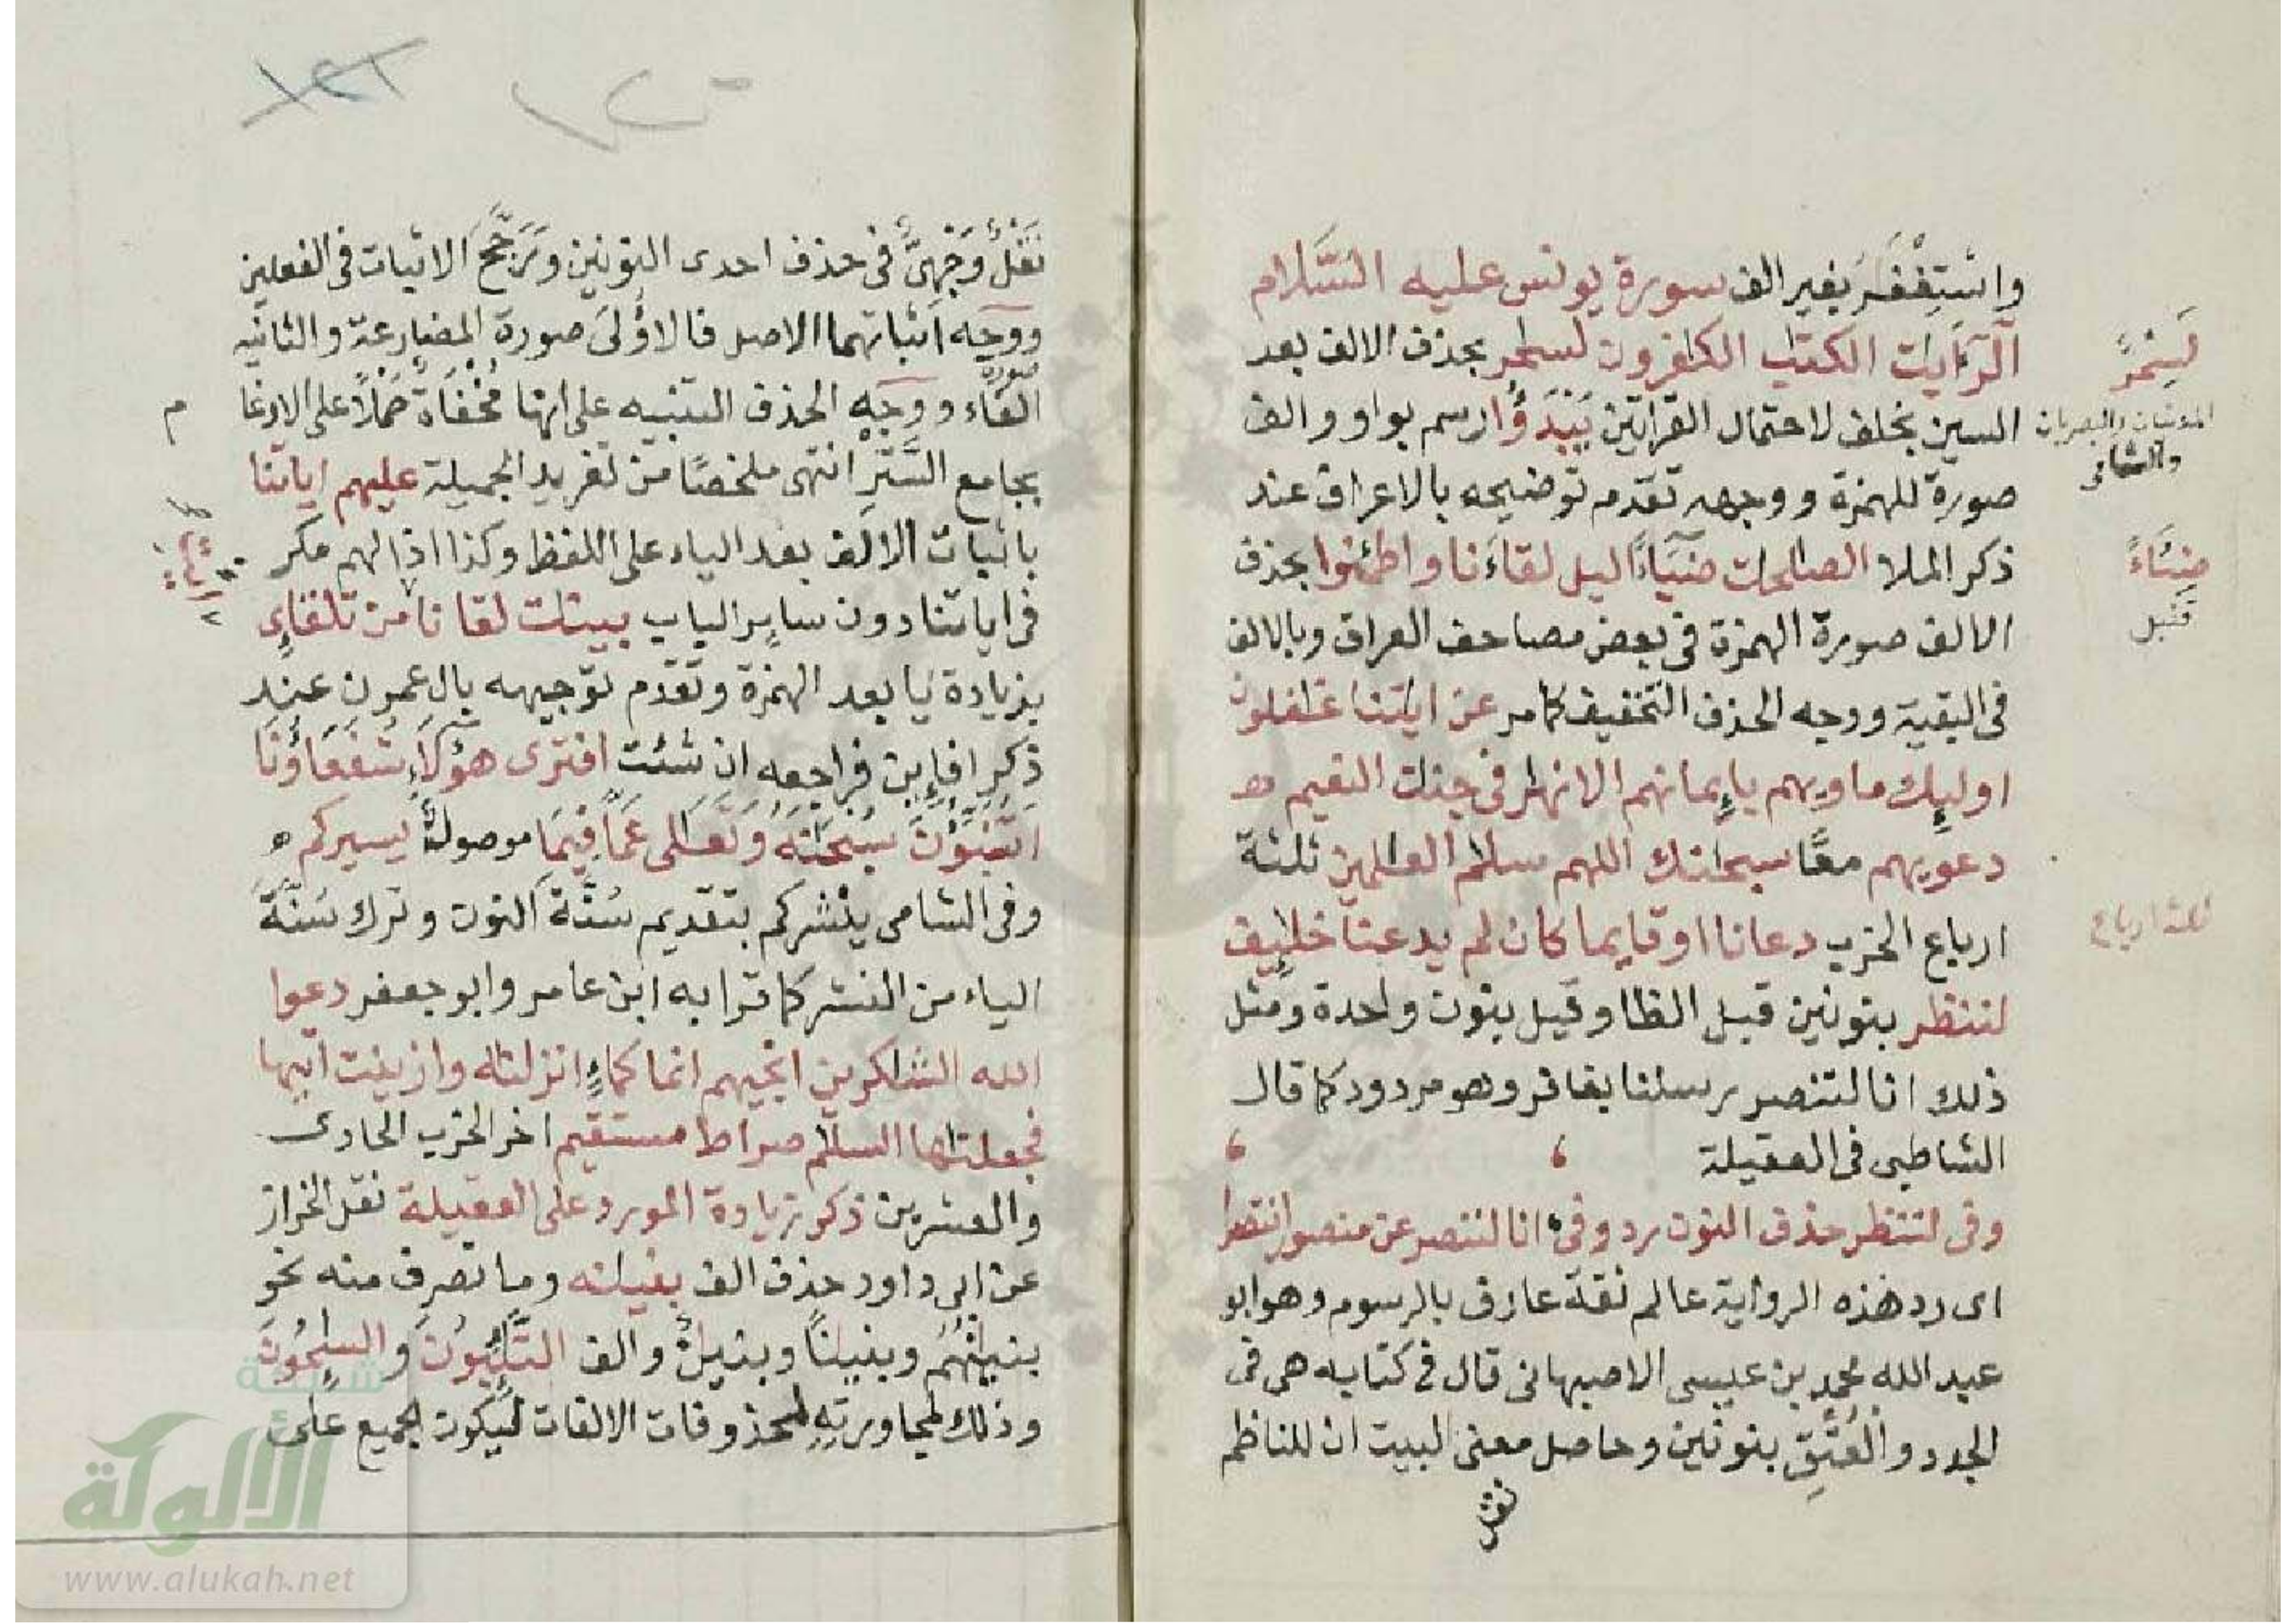 واستغفر بغير الف سورة يونس عليه السّلام
الٓر ءايات الكتٰب الكٰفرون لسٰحر بحذف الالف بعد
السين بخلف لاحتمال القراتين يَبْدَؤُا رسم بواو والف
صورة للهمزة ووجهه تقدم توضيحه بالاعراف عند
ذكر الملا الصٰلحٰت ضيَآءً اليل لقآءَنا واطمٔنوا بحذف
الالف صورة الهمزة فى بعض مصاحف العراق وبالالف
فى البقية ووجه الحذف التخفيف كما مر عن اٰيٰتنا غٰفلون
اوليٕك ماويهم بإيمانهم الانهٰر فى جنٰت النعيم
دعويهم معًا سبحٰنك اللهم سلٰم العٰلمين ثلثة
ارباع الحزب دعانا او قايما كان لم يدعنا خلٰيٕف
لننظر بنونين قبل الظا وقيل بنون واحدة ومثل
ذلك انا لننصر رسلنا بغافر وهو مردود كما قال
الشاطبى فى العقيلة
وفى لننظر حذف النون رد وفى انا لننصر عن منصور انتصرا
اى رد هذه الرواية عالم ثقة عارف بالرسوم وهو ابو
عبد الله محمد بن عيسى الاصبهانى قال فى كتابه هى فى
الجدد والعُتُقِ بنونين وحاصل معنى البيت ان للناظم
لَسِحْرٌ
المدنيان والبصريان
والشامى
ضِئَآءً
قنبل
ثلثة ارباع
نَقْلُ وَجْهَىْ فى حذف احدى النونين وتَرَجَّحَ الاثبات فى الفعلين
ووجه اثباتهما الاصل فالاُولى صورة المضارعة والثانيه
صورة
الفاء ووجه الحذف التنبيه على انها مُخْفَاةٌ حَمْلاً على الادغا
م
بجامع السَّتْرِ انتهى ملخصًا من تغريد الجميلة عليهم اياتنا
باثبات الالف بعد الياء على اللفظ وكذا اذا لهم مكر
فى اياتنا دون ساير الباب بينٰت لقانا من تلقاءِ
بزيادة يا بعد الهمزة وتقدم توجيهه بال عمرن عند
ذكر افإين فراجعه ان شئت افترى هؤلاَء شُفَعَاؤُنَا
اَتُنَبِّؤُنَ سُبْحٰنَهُ وَتَعٰلى عَمَّا فِيْمَا موصولةٌ يسيركم
وفى الشامى ينشركم بتقديم سُنَّة النون وترك سُنَّةَ
الياء من النشر كما قرا به ابن عامر وابو جعفر دعوا
الله الشٰكرين انجيهم انما كماءٍ انزلنٰه وازينت اتيها
فجعلنٰها السلٰم صراط مستقيم اخر الحزب الحادى
والعشرين ذكر زيادة المورد على العقيلة نقل الخراز
عن ابى داود حذف الف بنيٰنه وما تصرف منه نحو
بنيٰنُهُم وبنيٰنًا وبنيٰنٌ والف التّٰئِبُونَ والسٰئِحُونَ
وذلك لمجاورتِهِ لمحذوفات الالفات لِيَكونَ الجميع على
شبكة
الألوكة
www.alukah.net